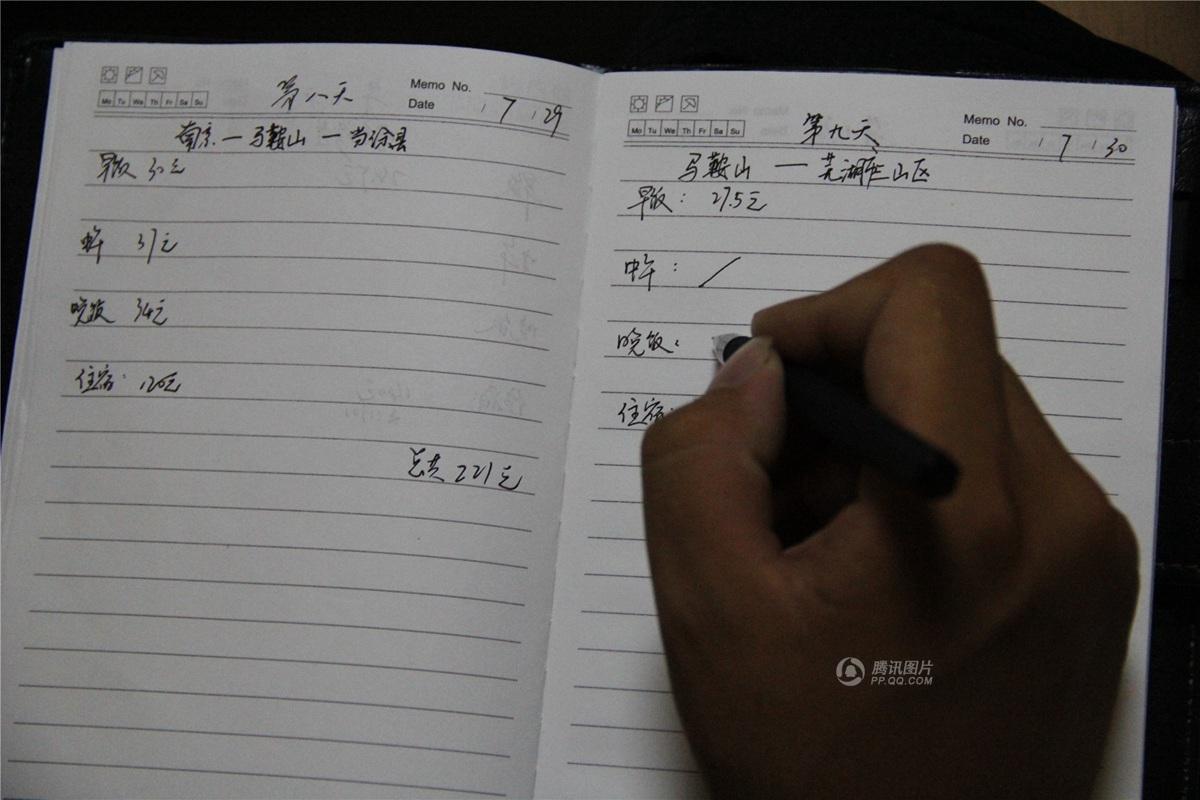 Mo Tu We Th Fr Sa Su
第八天
Memo No.
Date / 7 / 29
南京—马鞍山—当涂县
早饭 30元
中午 37元
晚饭 34元
住宿: 120元
总共 221元
Mo Tu We Th Fr Sa Su
第九天
Memo No.
Date / 7 / 30
马鞍山 — 芜湖 山区
早饭: 27.5元
中午: /
晚饭:
住宿:
腾讯图片
PP.QQ.COM